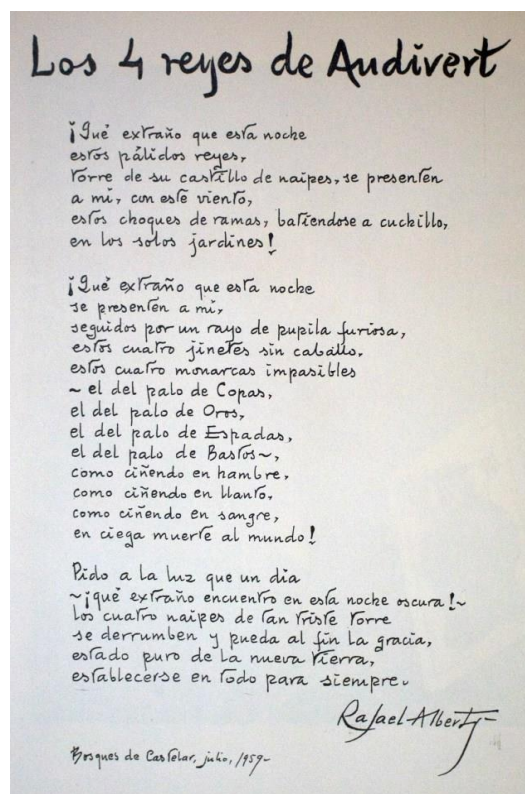 Los 4 reyes de Audivert
¡Qué extraño que esta noche
estos pálidos reyes,
torre de su castillo de naipes, se presenten
a mí, con este viento,
estos choques de ramas, batiéndose a cuchillo,
en los solos jardines!
¡Qué extraño que esta noche
se presenten a mí,
seguidos por un rayo de pupila furiosa,
estos cuatro jinetes sin caballo,
estos cuatro monarcas impasibles
~ el del palo de Copas,
el del palo de Oros,
el del palo de Espadas,
el del palo de Bastos~,
como ciñendo en hambre,
como ciñendo en llanto,
como ciñendo en sangre,
en ciega muerte al mundo!
Pido a la luz que un día
~¡qué extraño encuentro en esta noche oscura!~
los cuatro naipes de tan triste torre
se derrumben y pueda al fin la gracia,
estado puro de la nueva tierra,
establecerse en todo para siempre.
Rafael Alberti
Bosques de Castelar, julio, 1959-